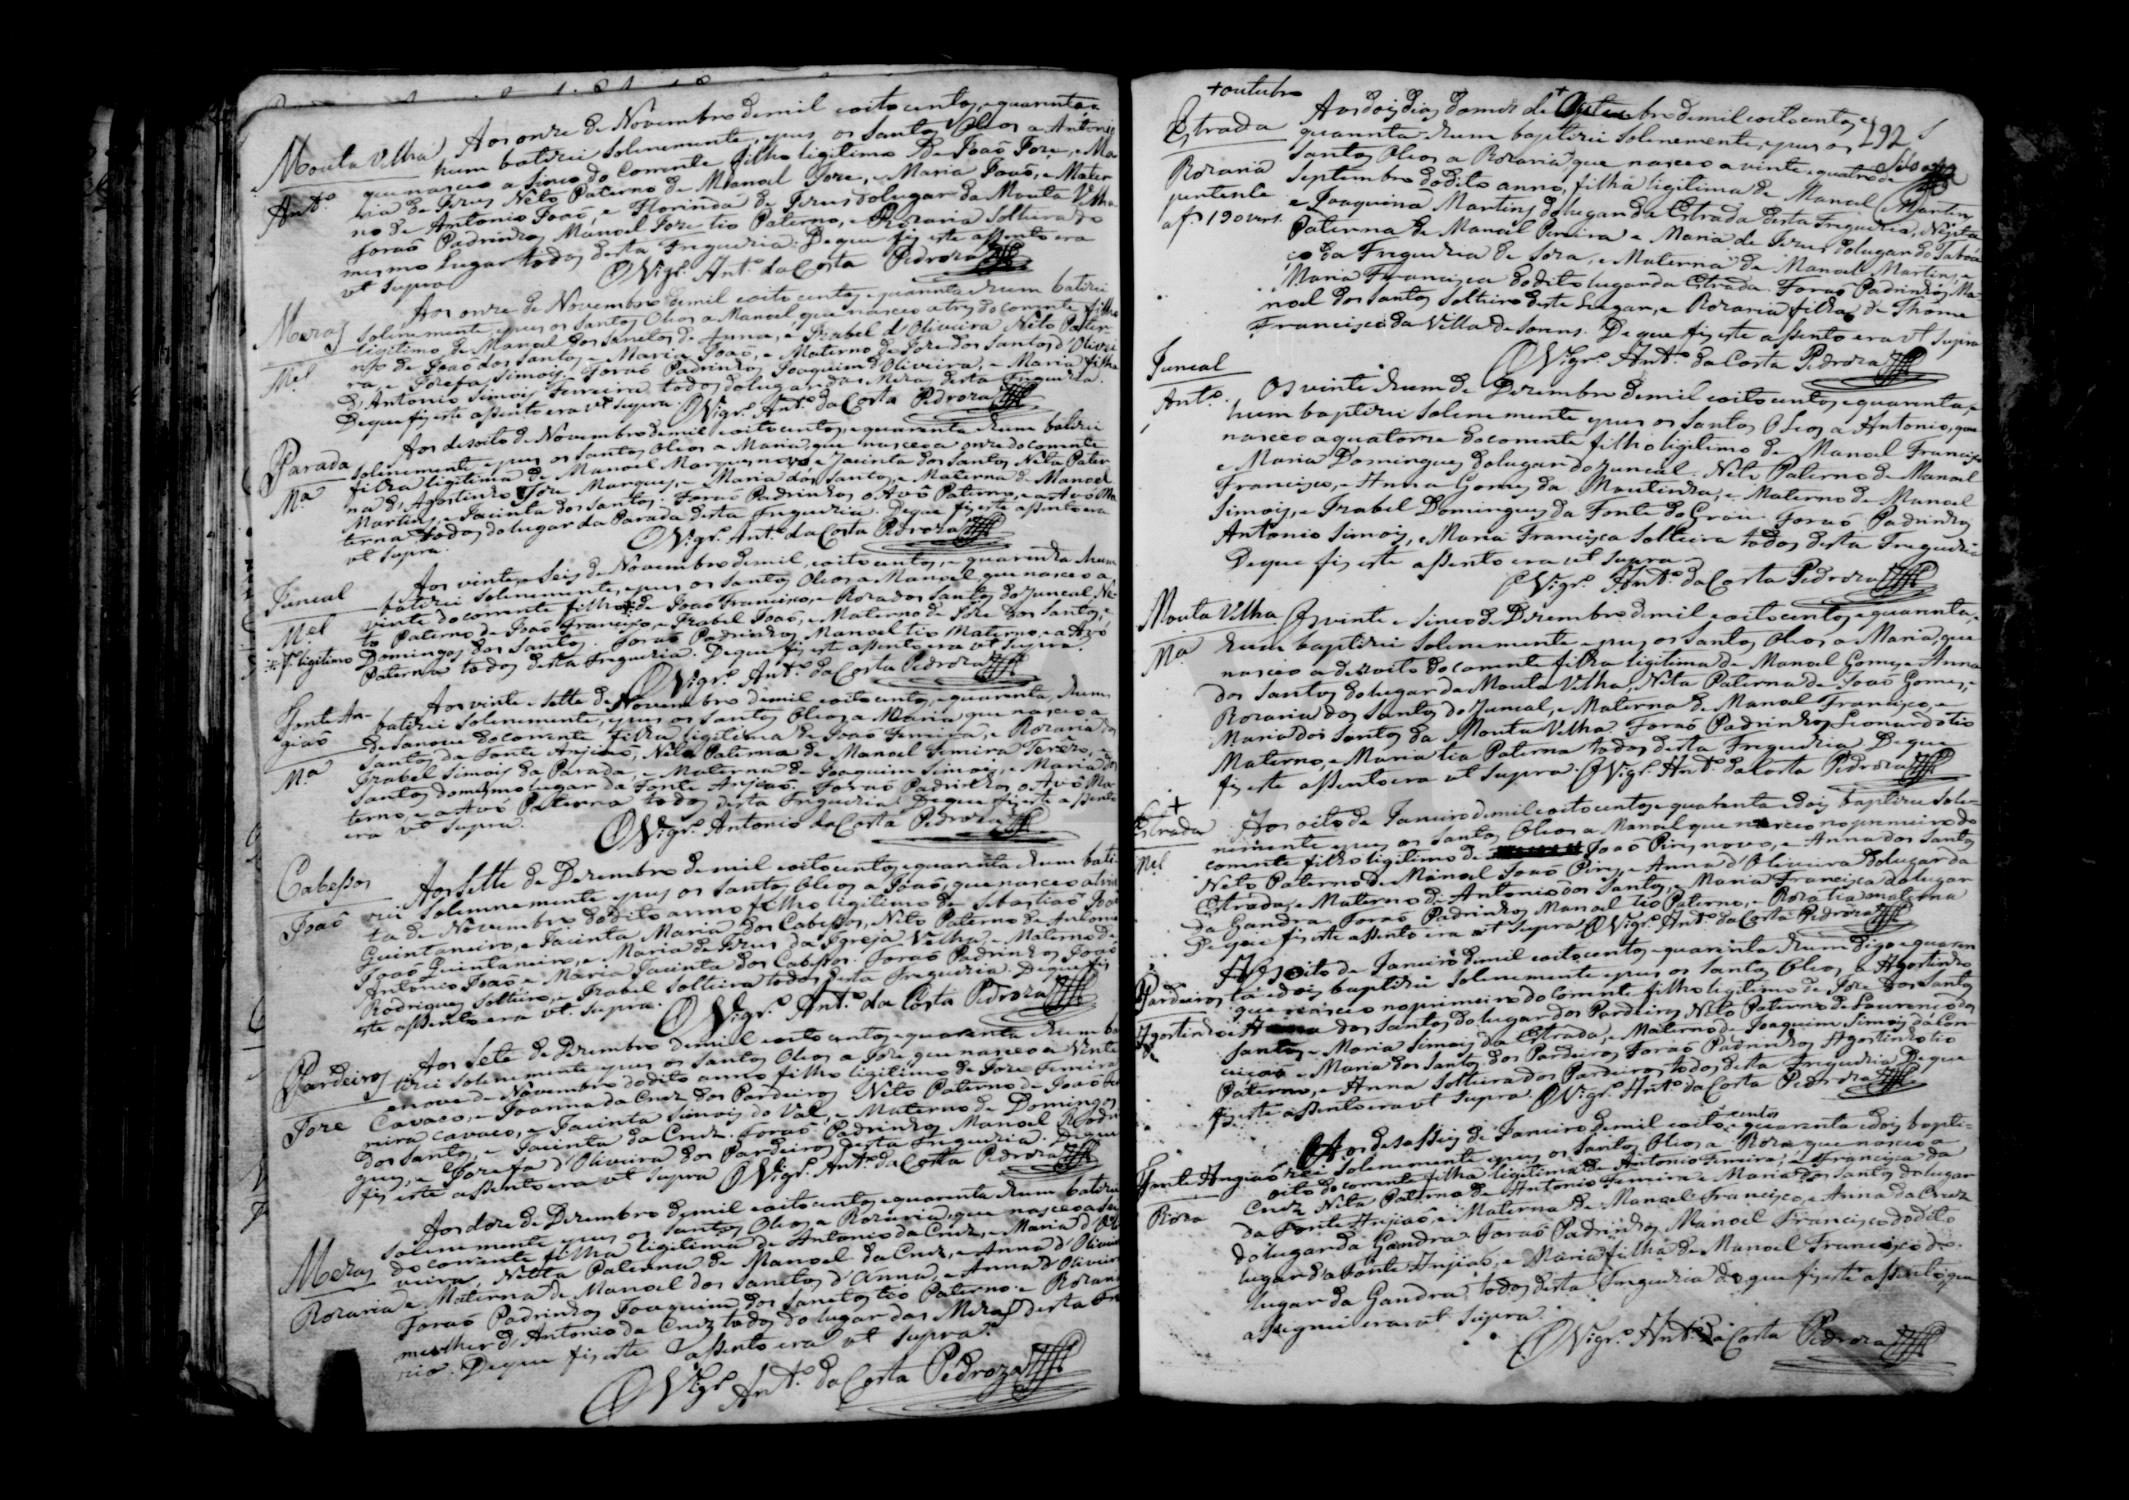 Mouta Velha
Ant.º
Aos onze de Novembro de mil e oito centos e quarenta e
hum batizei solenemente, e pus os Santos Oleos a Antonio
que nasceo a sinco do corrente filho ligitimo de João Joze, e Ma-
ria de Jezus Neto Paterno de Manoel Joze, e Maria João, e Mater-
no de Antonio João, e Florinda de Jezus do lugar da Mouta Velha
Forão Padrinhos Manoel Joze tio Paterno, e Rozaria Solteira do
mesmo Lugar todos desta Freguezia. De que fiz este assento era
ut supra
O Vigr.º Ant.º da Costa Pedroza
Meras
M.el
Aos onze de Novembro de mil e oito centos e quarenta e hum batizei
solenemente, e pus os Santos Oleos a Manoel que nasceo a tres do corrente filho
ligitimo de Manoel dos Sanctos de Anna, e Izabel d'Oliveira Neto Pater-
no de João dos Santos, e Maria João, e Materno de Joze dos Santos d'Olivei-
ra, e Jozefa Simois, Forão Padrinhos Joaquim d'Oliveira, e Maria filha
d'Antonio Simois Ferreira todos do lugar das Meras desta Freguezia.
De que fiz este assento era ut supra. O Vigr.º Ant.º da Costa Pedroza
Parada
M.ª
Aos desoito de Novembro de mil e oito centos, e quarenta e hum batizei
solenemente, e pus os Santos Oleos a Maria, que nasceo a onze do corrente
filha ligitima de Manoel Marques novo e Jacinta dos Santos Neta Pater-
na d'Agostinho Joze Marques, e Maria dos Santos, e Materna de Manoel
Martins, e Jacinta dos Santos. Forão Padrinhos o Avô Paterno, e a Avó Ma-
terna todos do lugar da Parada desta Freguezia. De que fiz este assento era
ut supra.
O Vigr.º Ant.º da Costa Pedroza
Juncal
M.el
f.º ligitimo
Aos vinte e seis de Novembro de mil, e oito centos, e quarenta e hum
batizei solenemente, e pus os Santos Oleos a Manoel que nasceo a
vinte do corrente filho de João Francisco, e Roza dos Santos do Juncal Ne-
to Paterno de João Francisco, e Izabel João, e Materno de Joze dos Santos, e
Domingas dos Santos. Forão Padrinhos Manoel tio Materno, e a Avó
Paterna todos desta Freguezia. De que fiz este assento era ut supra.
O Vigr.º Ant.º da Costa Pedroza
Fonte An-
gião
M.ª
Aos vinte e sette de Novembro de mil e oito centos, e quarenta, e hum
batizei solenemente, e pus os Santos Oleos a Maria que nasceo a
desanove do corrente, filha ligitima de João Ferreira, e Rozaria dos
Santos da Fonte Anjião, Neta Paterna de Manoel Ferreira Terezo, e
Izabel Simois da Parada, e Materna de Joaquim Simois, e Maria dos
Santos do mesmo lugar da Fonte Anjião. Forão Padrinhos o Avô Ma-
terno, e a Avó Paterna todos desta Freguezia. De que fiz este assento
era ut supra.
O Vigr.º Antonio da Costa Pedroza
Cabessos
João
Aos sette de Dezembro de mil e oito centos, e quarenta e hum bati-
zei solemnemente e pus os Santos Oleos a João, que nasceo a trin-
ta de Novembro do dito anno filho ligitimo de Sebastião João
Quintaneiro, e Jacinta Maria dos Cabessos, Neto Paterno de Antonio
João Quintaneiro, e Maria de Jezus da Igreja Velha e Materno de
Antonio João e Maria Jacinta dos Cabessos. Forão Padrinhos João
Rodrigues Solteiro, e Izabel Solteira todos desta Freguezia. De que fiz
este assento era ut supra.
O Vigr.º Ant.º da Costa Pedroza
Pardeiros
Joze
Aos sete de Dezembro de mil e oito centos, e quarenta e hum ba-
tizei solenemente e pus os Santos Oleos a Joze que nasceo a vinte
e nove de Novembro do dito anno filho ligitimo de Joze Ferreira
Cavaco, e Joanna da Cruz dos Pardieiros Neto Paterno de João Fer-
reira Cavaco, e Jacinta Simois do Val, e Materno de Domingos
dos Santos, e Jacinta da Cruz. Forão Padrinhos Manoel Rodri-
gues, e Jozefa d'Oliveira dos Pardieiros desta Freguezia. De que
fiz este assento era ut supra O Vigr.º Ant.º da Costa Pedroza
Meras
Rozaria
Aos doze de Dezembro de mil e oito centos, e quarenta e hum batizei
solenemente e pus os Santos Oleos a Rozaria, que nasceo a seis
do corrente filha ligitima de Antonio da Cruz, e Maria d'Oli-
veira, Netta Paterna de Manoel da Cruz, e Anna d'Oliveira
e Materna de Manoel dos Sanctos d'Anna, e Anna d'Oliveira
Forão Padrinhos Joaquim dos Sanctos tio Paterno e Rozaria
mulher d'Antonio da Cruz todos do lugar das Meras desta Fre-
zia. De que fiz este assento era ut supra.
O Vigr.º Ant.º da Costa Pedroza
+ outubro
192
Estrada
Rozaria
pertente
a f. 190 vers.
Aos dois dias do mes de + Outubro de mil e oito centos e
quarenta e hum baptizei solenemente, e pus os
Santos Oleos a Rozaria que nasceo a vinte e quatro de
Septembro do dito anno, filha ligitima de Manoel Martins
e Joaquina Martins do lugar da Estrada desta Freguezia, Neta
Paterna de Manoel Pereira e Maria de Jezus do lugar do Taboa-
ço da Freguezia de Soza, e Materna de Manoel Martins, e
Maria Francisca do dito lugar da Estrada. Forão Padrinhos Ma-
noel dos Santos Solteiro deste Lugar, e Rozaria filha de Thome
Francisco da Villa de Sorens. De que fiz este assento era ut supra
O Vigr.º Ant.º da Costa Pedroza
Juncal
Ant.º
Os vinte e hum de Dezembro de mil e oito centos, e quarenta, e
hum baptizei solenemente e pus os Santos Oleos a Antonio, que
nasceo a quatorze do corrente filho ligitimo de Manoel Francisco
e Maria Domingues do lugar do Juncal. Neto Paterno de Manoel
Francisco, e Anna Gomes da Moutinha, e Materno de Manoel
Simois, e Izabel Domingues da Fonte do Grou. Forão Padrinhos
Antonio Simois, e Maria Francisca Solteira todos desta Freguezia
De que fiz este assento era ut supra
O Vigr.º Ant.º da Costa Pedroza
Mouta Velha
M.ª
Os vinte e sinco de Dezembro de mil e oito centos, e quarenta, e
hum baptizei solenemente e pus os Santos Oleos a Maria, que
nasceo a desoito do corrente filha ligitima de Manoel Gomes, e Anna
dos Santos do lugar da Mouta Velha, Neta Paterna de João Gomes, e
Rozaria dos Santos do Juncal, e Materna de Manoel Francisco, e
Maria dos Santos da Mouta Velha Forão Padrinhos Leonardo tio
Materno, e Maria tia Paterna todos desta Freguezia De que
fiz este assento era ut supra. O Vigr.º Ant.º da Costa Pedroza
+
Estrada
M.el
Aos oito de Janeiro de mil e oito centos e quarenta e dois baptizei sole-
nemente e pus os Santos Oleos a Manoel que nasceo no primeiro do
corrente filho ligitimo de João Pires novo, e Anna dos Santos
Neto Paterno de Manoel João Pires, e Anna d'Oliveira do lugar da
Estrada, e Materno de Antonio dos Santos, e Maria Francisca do lugar
da Gandra, Forão Padrinhos Manoel tio Paterno, e Roza tia materna
De que fiz este assento era ut supra O Vigr.º Ant.º da Costa Pedroza
Pardeiros
Agostinho
Aos oito de Janeiro de mil e oito centos e quarenta e hum digo e quaren-
ta e dois baptizei solenemente e pus os Santos Oleos a Agostinho
que nasceo no primeiro do corrente filho ligitimo de Joze dos Santos
e Anna dos Santos do lugar dos Pardeiros Neto Paterno de Lourenço dos
Santos, e Maria Simois da Estrada, e Materno de Joaquim Simois da Con-
ceição e Maria dos Santos dos Pardeiros Forão Padrinhos Agostinho tio
Paterno, e Anna Solteira dos Pardeiros todos desta Freguezia De que
fiz este assento era ut supra. O Vigr.º Ant.º da Costa Pedroza
Fonte Angião
Roza
Aos desasseis de Janeiro de mil e oito centos e quarenta e dois bapti-
zei solenemente e pus os Santos Oleos a Roza que nasceo a
oito do corrente filha ligitima de Antonio Ferreira, e Francisca da
Cruz Neta Paterna de Antonio Ferreira e Maria dos Santos do lugar
da Fonte Anjião e Materna de Manoel Francisco, e Anna da Cruz
do lugar da Gandra Forão Padrinhos Manoel Francisco do dito
lugar da Fonte Anjião, e Maria filha de Manoel Francisco do
lugar da Gandra todos desta Freguezia de que fiz este assento que
assignei era ut supra.
O Vigr.º Ant.º da Costa Pedroza